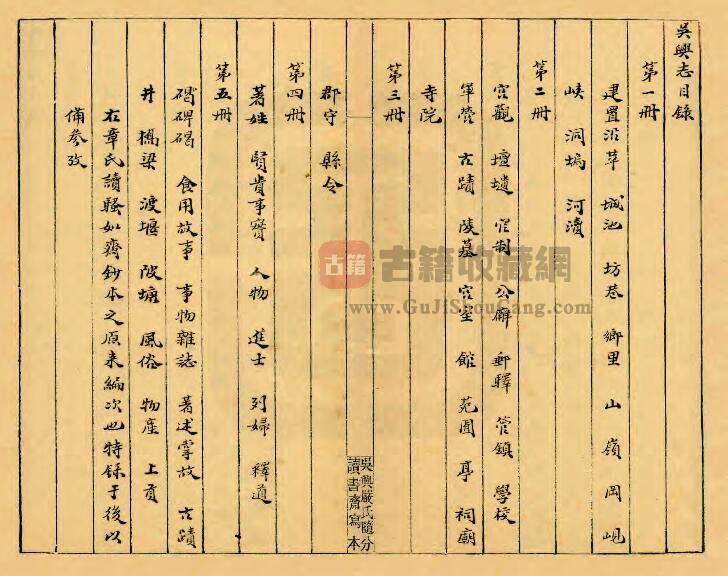 吳興志目錄
第一冊
建置沿革 城池 坊巷 鄉里 山 嶺 岡 峴
峽 洞 塢 河瀆
第二冊
宮觀 壇壝 官制 公廨 郵驛 管鎮 學校
軍營 古蹟 陵墓 宮室 館 苑囿 亭 祠廟
寺院
第三冊
郡守 縣令
第四冊
著姓 賢貴事實 人物 進士 列婦 釋道
第五冊
碑碣 食用故事 事物雜誌 著述掌故 古蹟
井 橋梁 渡堰 陂塘 風俗 物產 上貢
右章氏讀騷如齋鈔本之原來編次也特錄于後以
備參攷
吳興嚴氏隨分
讀書齋寫本
古籍
古籍收藏網
www.GuJiShouCang.com